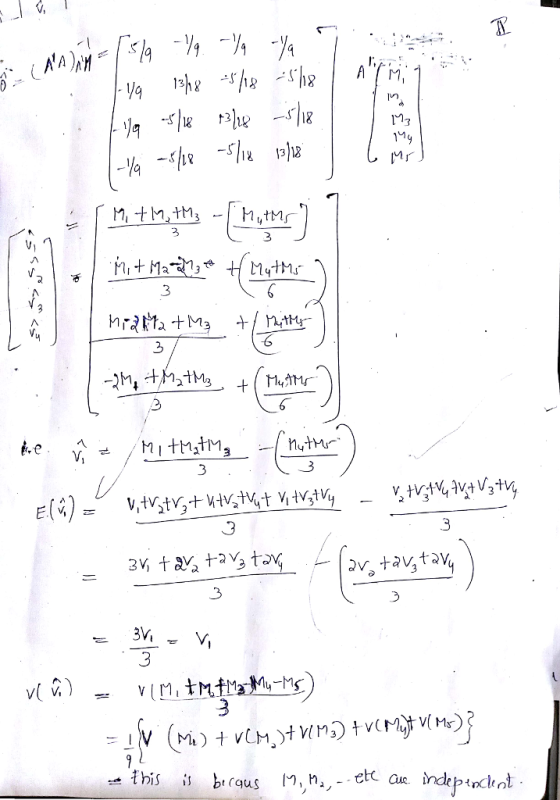 II
θ̂ = (A'A)⁻¹A'M = [ 5/9 -1/9 -1/9 -1/9 ] A' [ M₁
[ -1/9 13/18 -5/18 -5/18 ] M₂
[ -1/9 -5/18 13/18 -5/18 ] M₃
[ -1/9 -5/18 -5/18 13/18 ] M₄
M₅ ]
[ v̂₁ ] = [ (M₁+M₂+M₃)/3 - [(M₄+M₅)/3] ]
[ v̂₂ ] = [ (M₁+M₂-2M₃)/3 + ((M₄+M₅)/6) ]
[ v̂₃ ] [ (M₁-2M₂+M₃)/3 + ((M₄+M₅)/6) ]
[ v̂₄ ] [ (-2M₁+M₂+M₃)/3 + ((M₄+M₅)/6) ]
i.e v̂₁ = (M₁+M₂+M₃)/3 - ((M₄+M₅)/3)
E(v̂₁) = (V₁+V₂+V₃+V₁+V₂+V₄+V₁+V₃+V₄)/3 - (V₂+V₃+V₄+V₂+V₃+V₄)/3
= (3V₁+2V₂+2V₃+2V₄)/3 - ((2V₂+2V₃+2V₄)/3)
= 3V₁/3 = V₁
V(v̂₁) = V((M₁+M₂+M₃-M₄-M₅)/3)
= 1/9 {V(M₁)+V(M₂)+V(M₃)+V(M₄)+V(M₅)}
- this is becaus M₁, M₂, -- etc are independent.